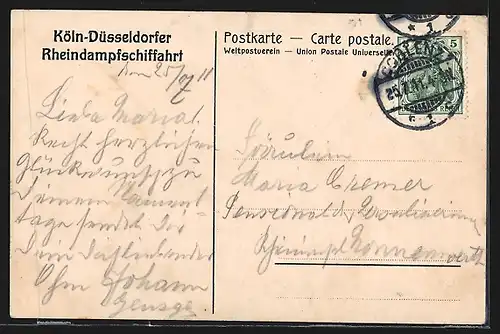 Köln-Düsseldorfer
Rheindampfschiffahrt
Postkarte — Carte postale.
Weltpostverein — Union Postale Universelle
5
COBLENZ
25.7.11
* 1
den 25/7 11
Liebe Maria!
Recht herzlichen
Glückwunsch zu
Deinem Namens-
tage sendet Dir
Dein
Ohm Johann
Fräulein
Maria Cremer
Rheininsel Nonnenwerth